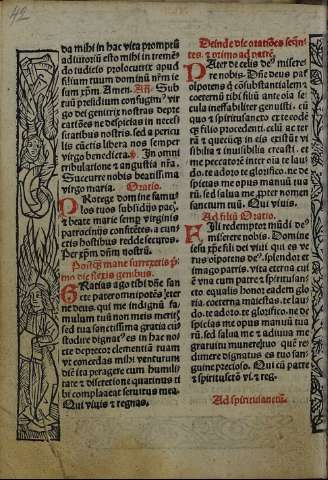 42
da mihi in hac vita promptū
adiutoriū esto mihi in tremē-
do iudicio prolocutrix apud
filium tuum dominū nr̄m ie
sum xp̄m. Amen. Añ. Sub
tuū presidium confugim⁹ vir
go dei genitrix nostras depre
catiōes ne despicias in neces
sitatibus nostris sed a pericu
lis cūctis libera nos semper
virgo benedicta. In omni
tribulatione et angustia nr̄a.
Succurre nobis beatissima
virgo maria. Oratio.
Protege domine famu
los tuos subsidijs pacꝭ
et beate marie semp̄ virginis
patrocinijs confitētes. a cun
ctis hostibus redde securos.
Per xp̄m dominū nostrū.
Postq̄ mane surrexeris p̄
mo dic flexis genibus.
Gratias ago tibi dn̄e san
cte pater omnipotēs eter
ne deus. qui me indignū fa
mulum tuū non meis meritꝭ
sed tua sanctissima gratia cu
stodire dignar⁹ es in hac no
cte deprecor clementiā tuam
vt concedas mihi venturum
diē ita peragere cum humili
tate et discretione quatinus ti
bi complaceat seruitus mea.
Qui viuis et regnas.
Deinde dic oratiōes seq̄n
tes. et primo ad patrē.
Pater de celis de⁹ misere
re nobis. Dn̄e deus pa
oīpotens et cōsubstantialem et
coeternū tibi filiū ante oīa se
cula ineffabiliter genuisti. cū
quo et spiritusancto ex te eodē
q̄ filio procedenti. celū ac ter
rā et quecūq̄ in eis existūt vi
sibilia et inuisibilia creasti. et
me peccatorē inter oīa te lau
do. te adoro te glorifico. ne de
spicias me opus manuū tua
rū. sed salua me ꝓpter nomen
sanctum tuū. Qui viuis.
Ad filiū Oratio.
Fili redemptor mūdi de⁹
miserere nobis. Domine
iesu xp̄e fili dei viui qui es ve
rus oīpotens de⁹. splendor et
imago patris. vita eterna cui
ē vna cum patre et spiritusan-
cto equalis honor eadem glo
ria. eterna maiestas. te lau-
do. te adoro. te glorifico. ne de
spicias me opus manuū tua
rū. sed salua me et adiuua me
gratuitu munere/quo quē re-
dimere dignatus es tuo san-
guine precioso. Qui cū patre
et spiritusctō vi. et reg.
Ad spiritusanctū.